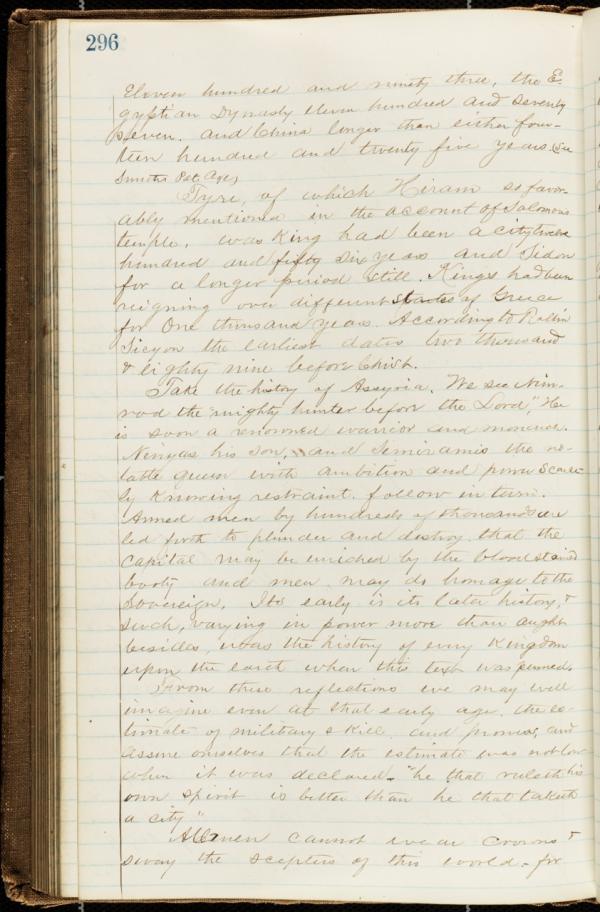 296
Eleven hundred and ninety three, the E-
gyptian Dynasty eleven hundred and seventy
seven. and China longer than either four-
teen hundred and twenty five years. (See
Smiths Pat. Age)
Tyre, of which Hiram so favor-
ably mentioned in the account of Solomons
temple, was King had been a city twelve
hundred and fifty six years and Sidon
for a longer period still. Kings had been
reigning over different states of Greece
for One thousand years. According to Rollin
Sicyon the earliest dates two thousand
& eighty nine before Christ.
Take the history of Assyria. We see Nim-
rod the "mighty hunter before the Lord," He
is soon a renowned warrior and monarch.
Ninyas his son, and Semiramis the
queen with ambition and power scarce-
ly knowing restraint. follow in turn.
Armed men by hundreds of thousands are
led forth to plunder and destroy that the
Capital may be enriched by the blood stained
booty and men may do homage to the
Sovereign. Its early is its later history, &
such, varying in power more than aught
besides, was the history of every Kingdom
upon the earth when this text was penned.
From these reflections we may well
imagine even at that early age, the es-
timate of military skill and prowess, and
assure ourselves that the estimate was not low
when it was declared - "he that ruleth his
own spirit is better than he that taketh
a city"
All men cannot wear crowns &
sway the scepters of this world - for